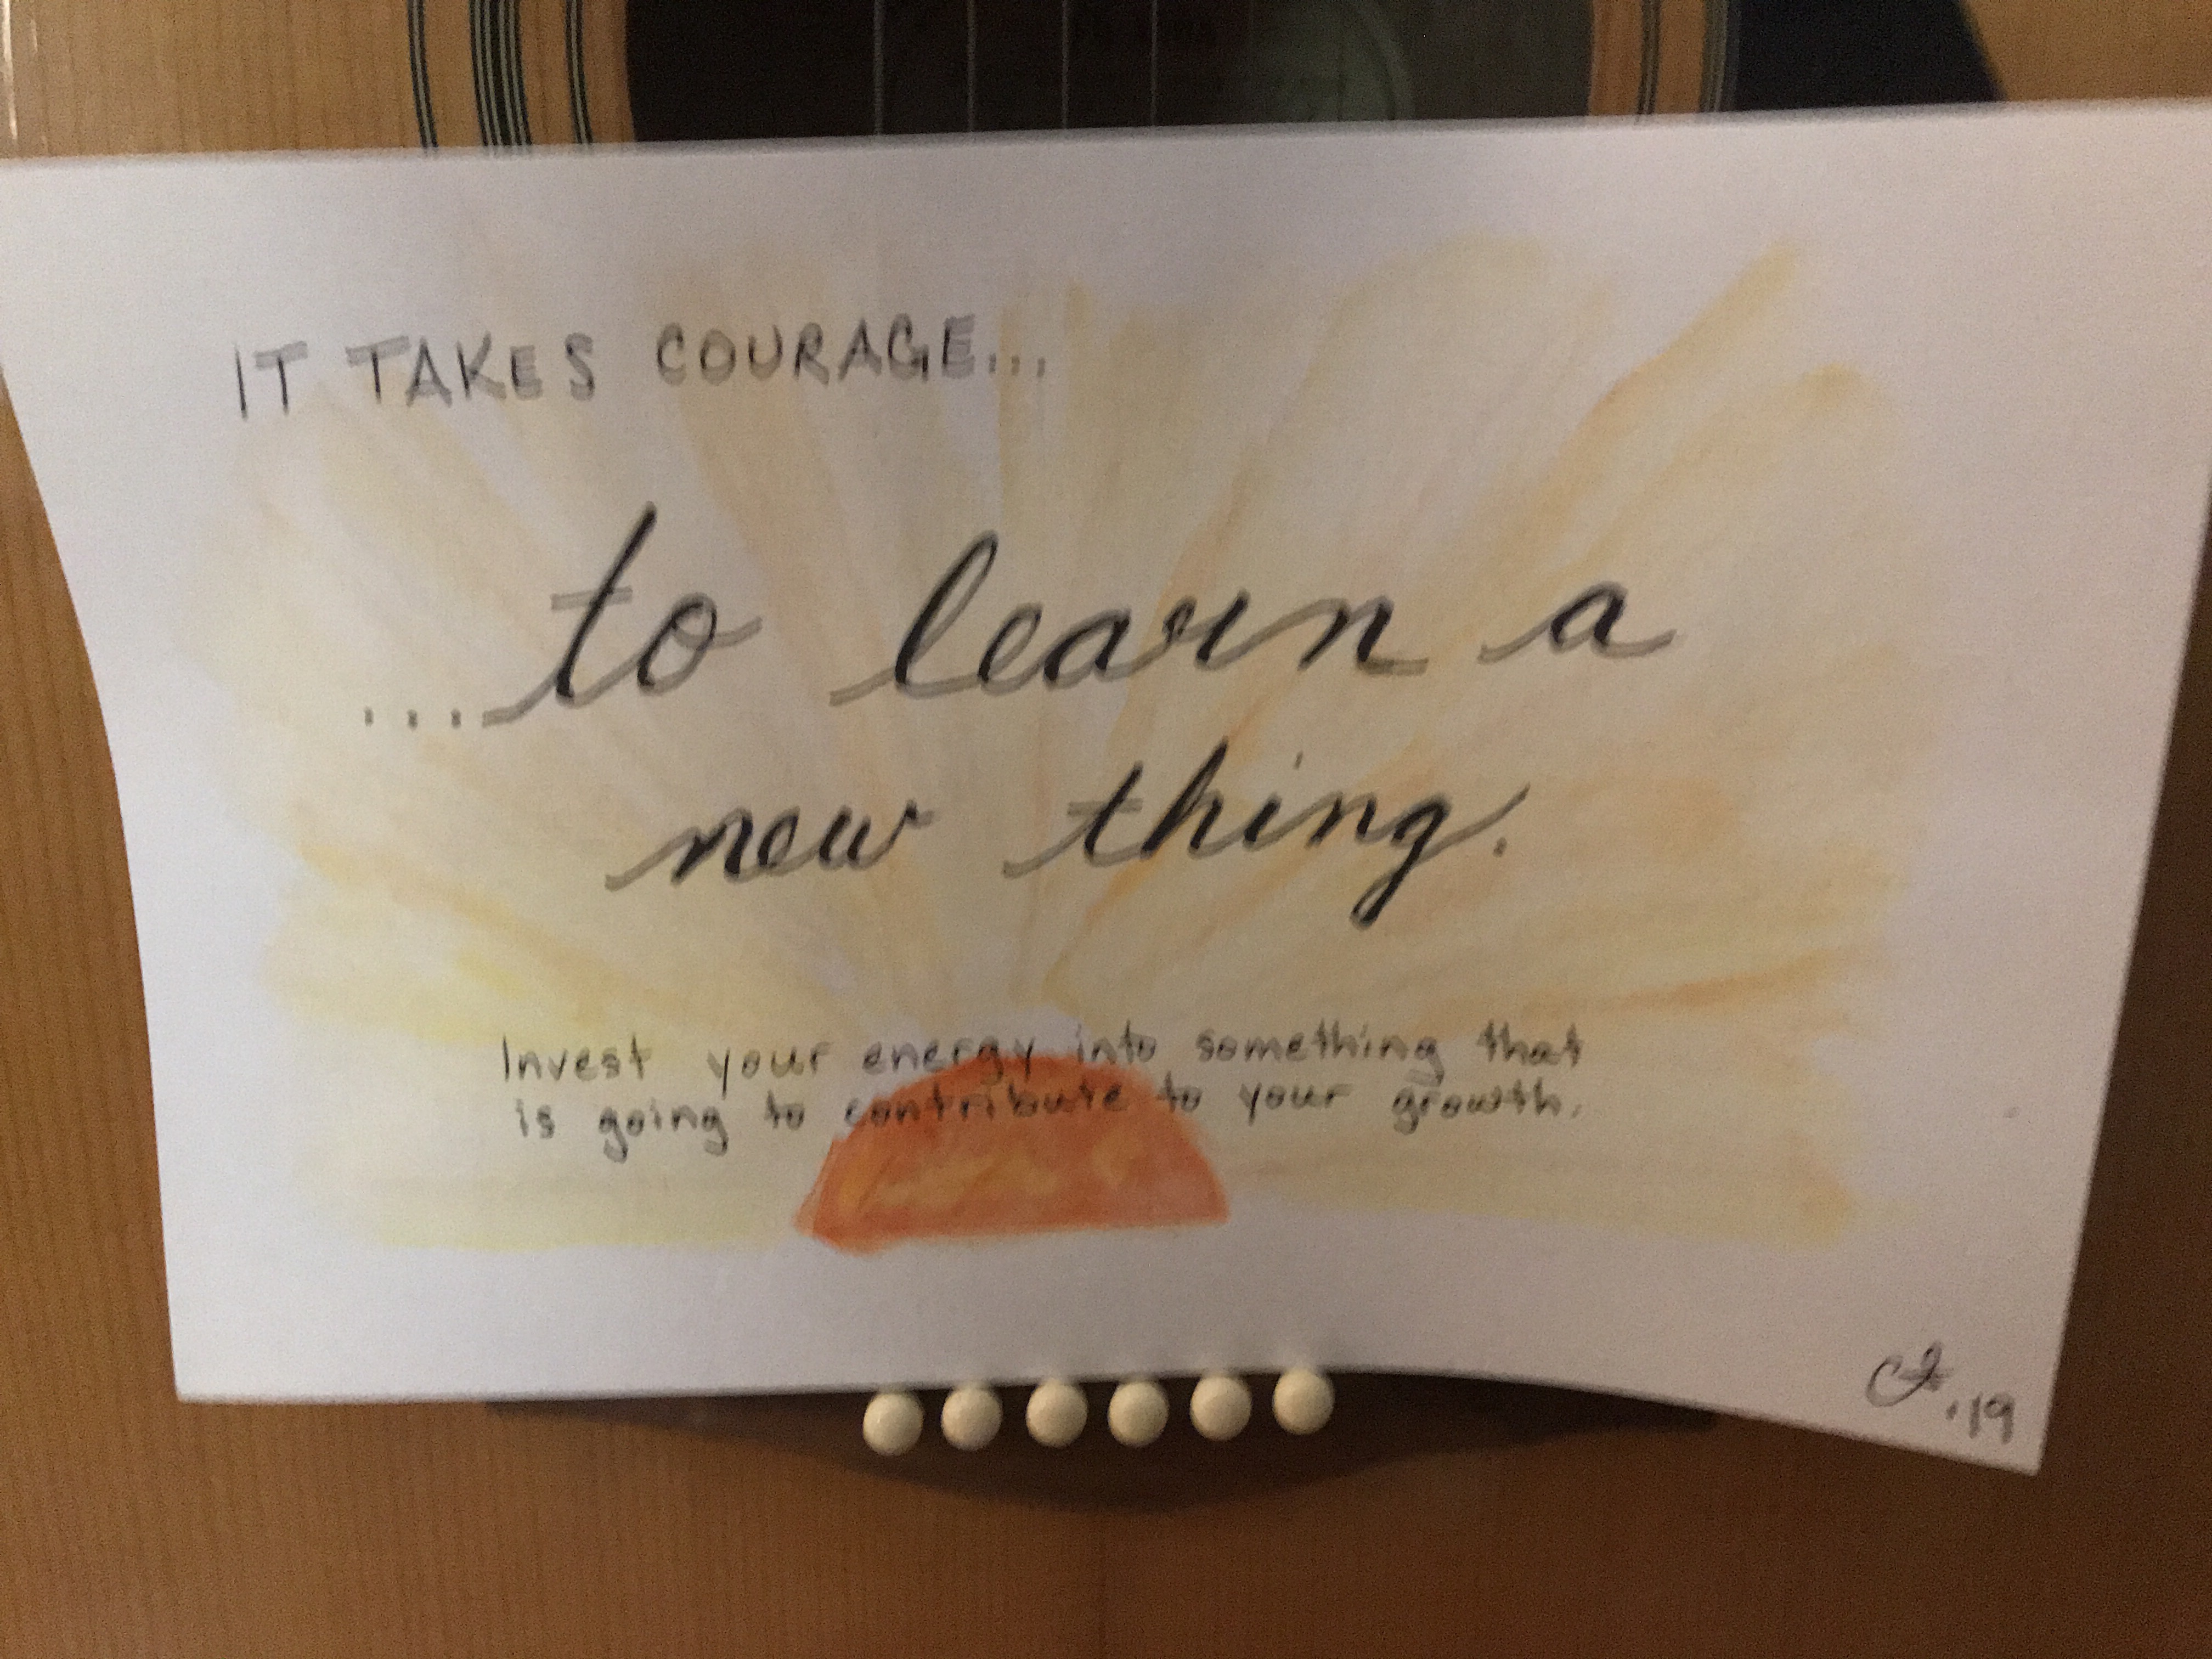 IT TAKES COURAGE...
...to learn a
new thing.
Invest your energy into something that
is going to contribute to your growth.
'19